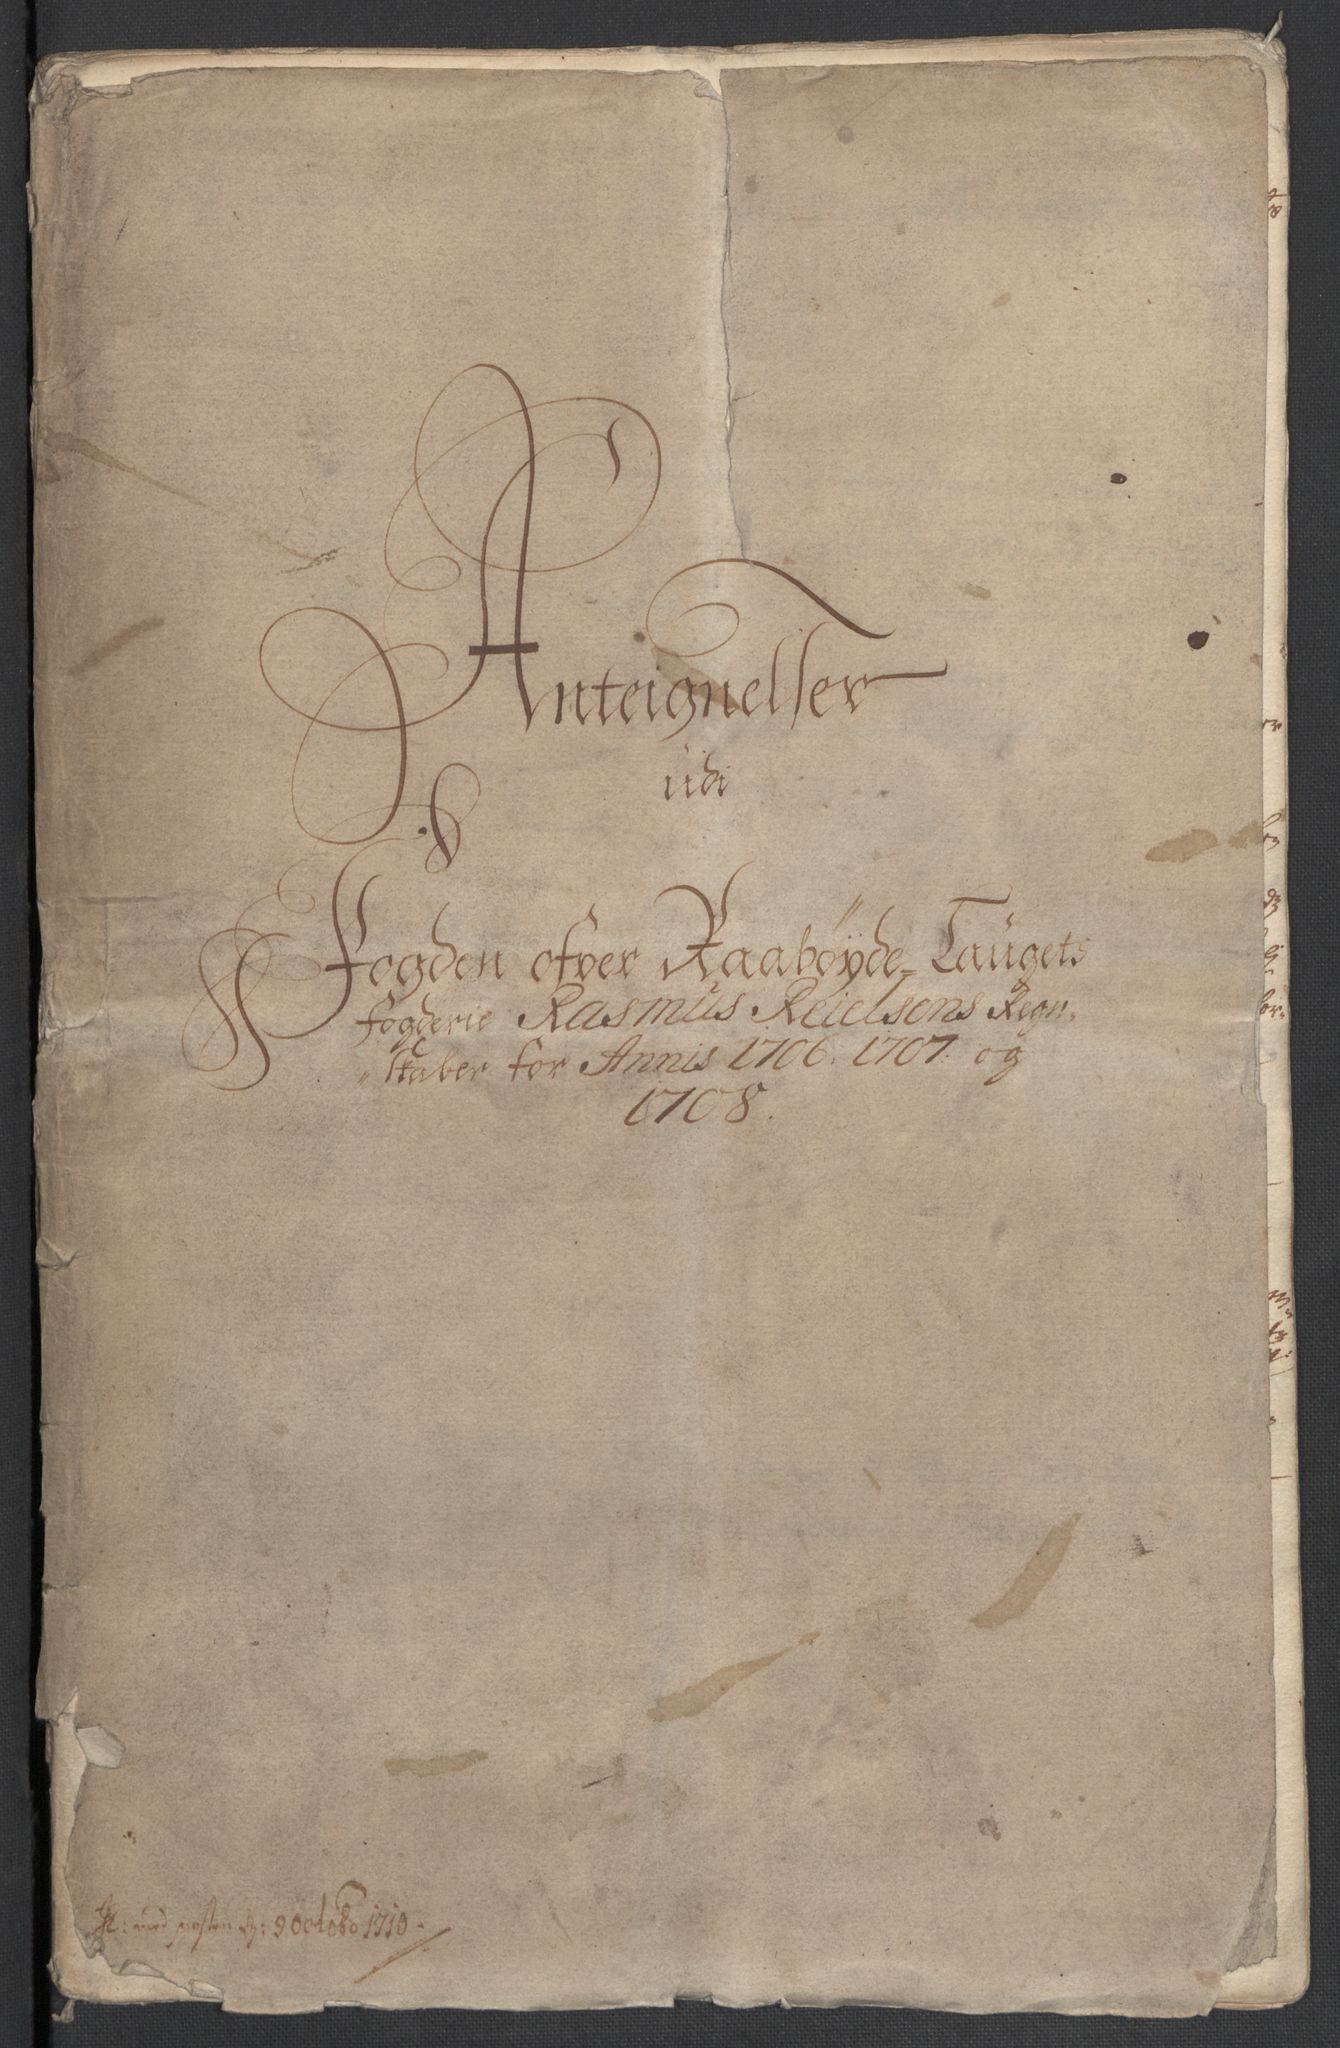 Anteignelser
udi
Fogden ofver Raabøyde=Laugets
fogderie Rasmus Reielsons Regn,
„ skaber for Annis 1706. 1707. og
1708.
med posten d: 9 octobr 1710.